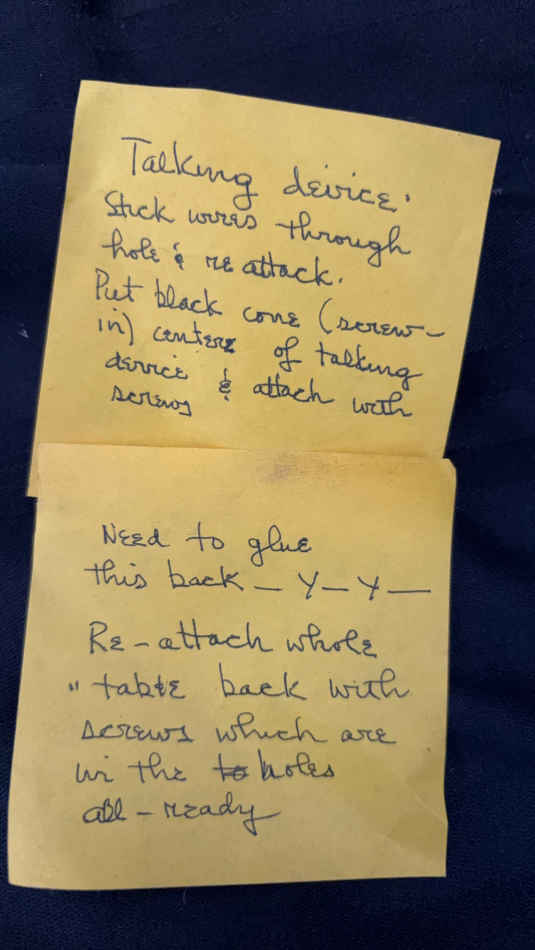 Talking device.
Stick wires through
hole & re attack.
Put black cone (screw-
in) centere of talking
device & attach with
screws
Need to glue
this back _ Y _ Y _
Re-attach whole
" table back with
screws which are
in the to holes
all-ready